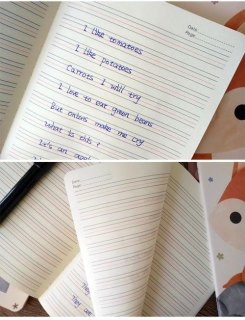 Date:
Page:
I like tomatoes
I like potatoes
Carrots I will try
I love to eat green beans
But onions make me cry
What is this?
It's an
Date:
Page:
They
They are